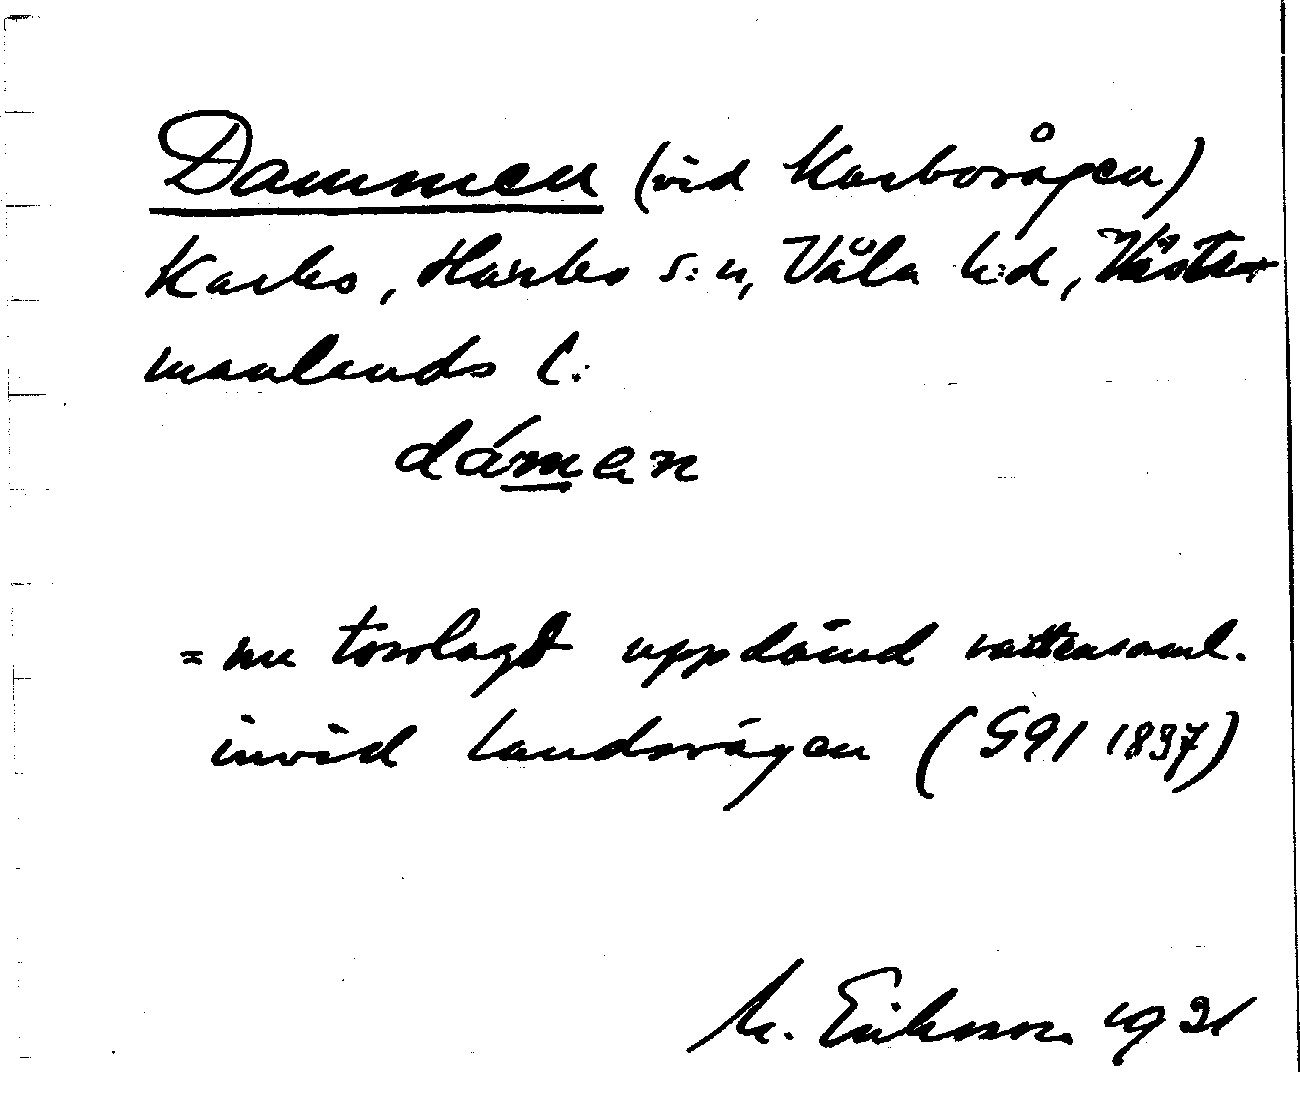 Dammen (vid Karbovågen)
Karbo, Harbo s:n, Våla h:d, Väster
manlands l.
dámen
= nu torrlagd uppdämd vattensaml.
invid landsvägen (G91 1897)
M. Eriksson 1931